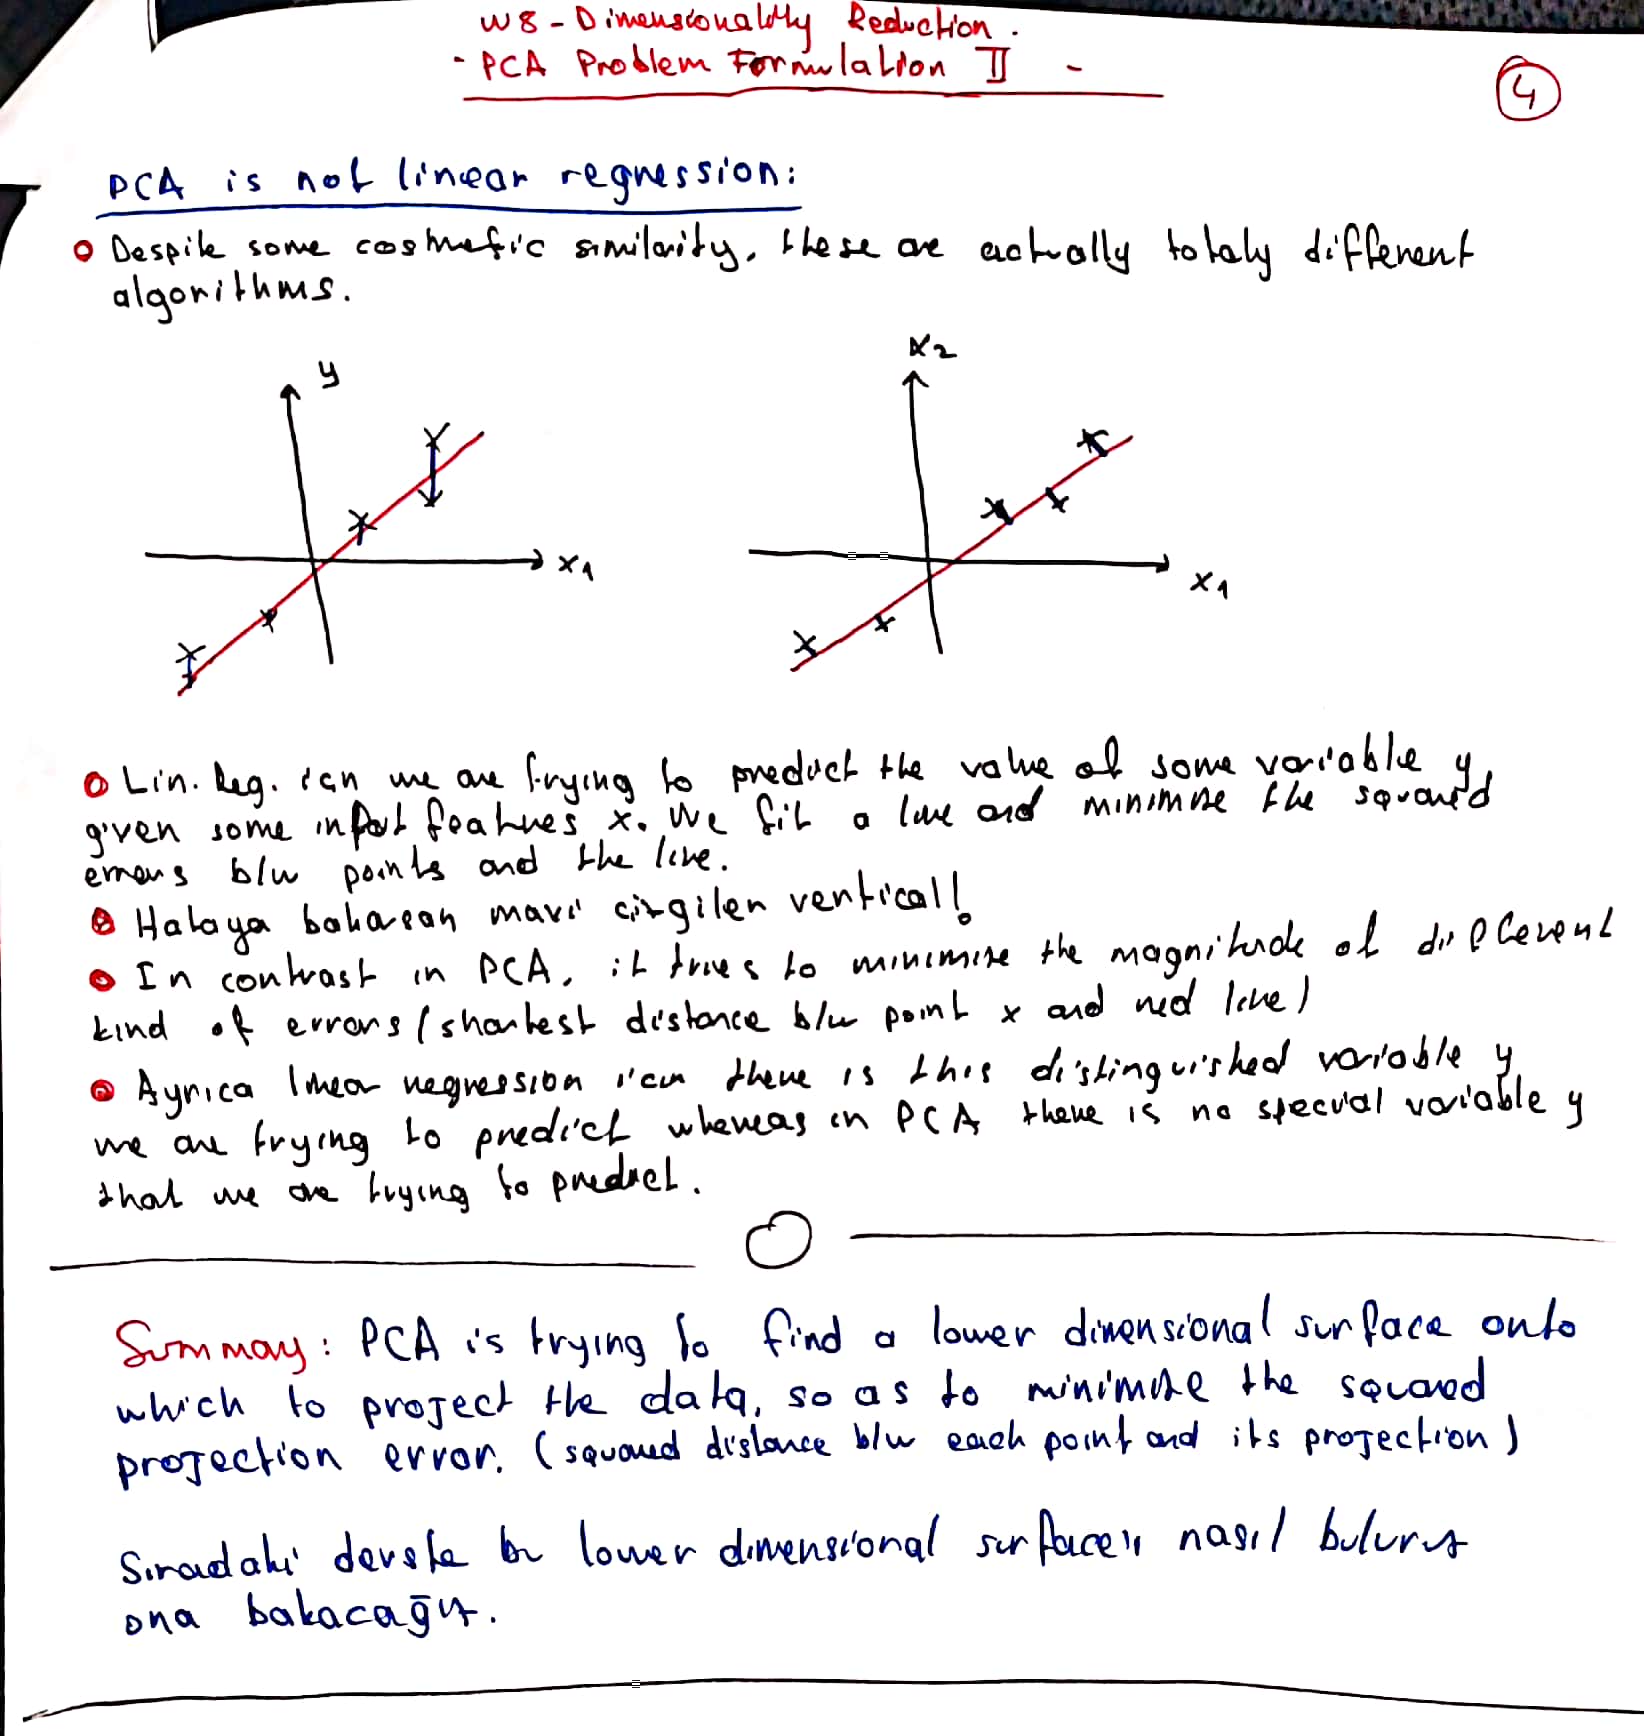 W8 - Dimensionality Reduction.
- PCA Problem Formulation II -
4
PCA is not linear regression:
Despite some cosmetic similarity, these are actually totaly different
algorithms.
y
x1
x2
x1
Lin. Reg. için we are trying to predict the value of some variable y,
given some input features x. We fit a line and minimise the squared
errors b/w points and the line.
Hataya bakarsan mavi çizgiler vertical!
In contrast in PCA, it tries to minimise the magnitude of different
kind of errors (shortest distance b/w point x and red line)
Ayrıca linear regression için there is this distinguished variable y,
we are trying to predict whereas in PCA there is no special variable y
that we are trying to predict.
Summay: PCA is trying to find a lower dimensional surface onto
which to project the data, so as to minimize the squared
projection error. (squared distance b/w each point and its projection)
Sıradaki derste bu lower dimensional surface'ı nasıl buluruz
ona bakacağız.